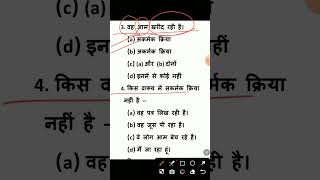 3. वह आम खरीद रही है।
(a) सकर्मक क्रिया
(b) अकर्मक क्रिया
(c) (a) और (b) दोनों
(d) इनमें से कोई नहीं
4. किस वाक्य में सकर्मक क्रिया
नहीं है –
(a) वह पत्र लिख रही है।
(b) वह जूस पी रहा है।
(c) वे लोग आम बेच रहे हैं।
(d) मैं जा रहा हूं।
(d) इन
4. किस
नहीं है -
(a) वह